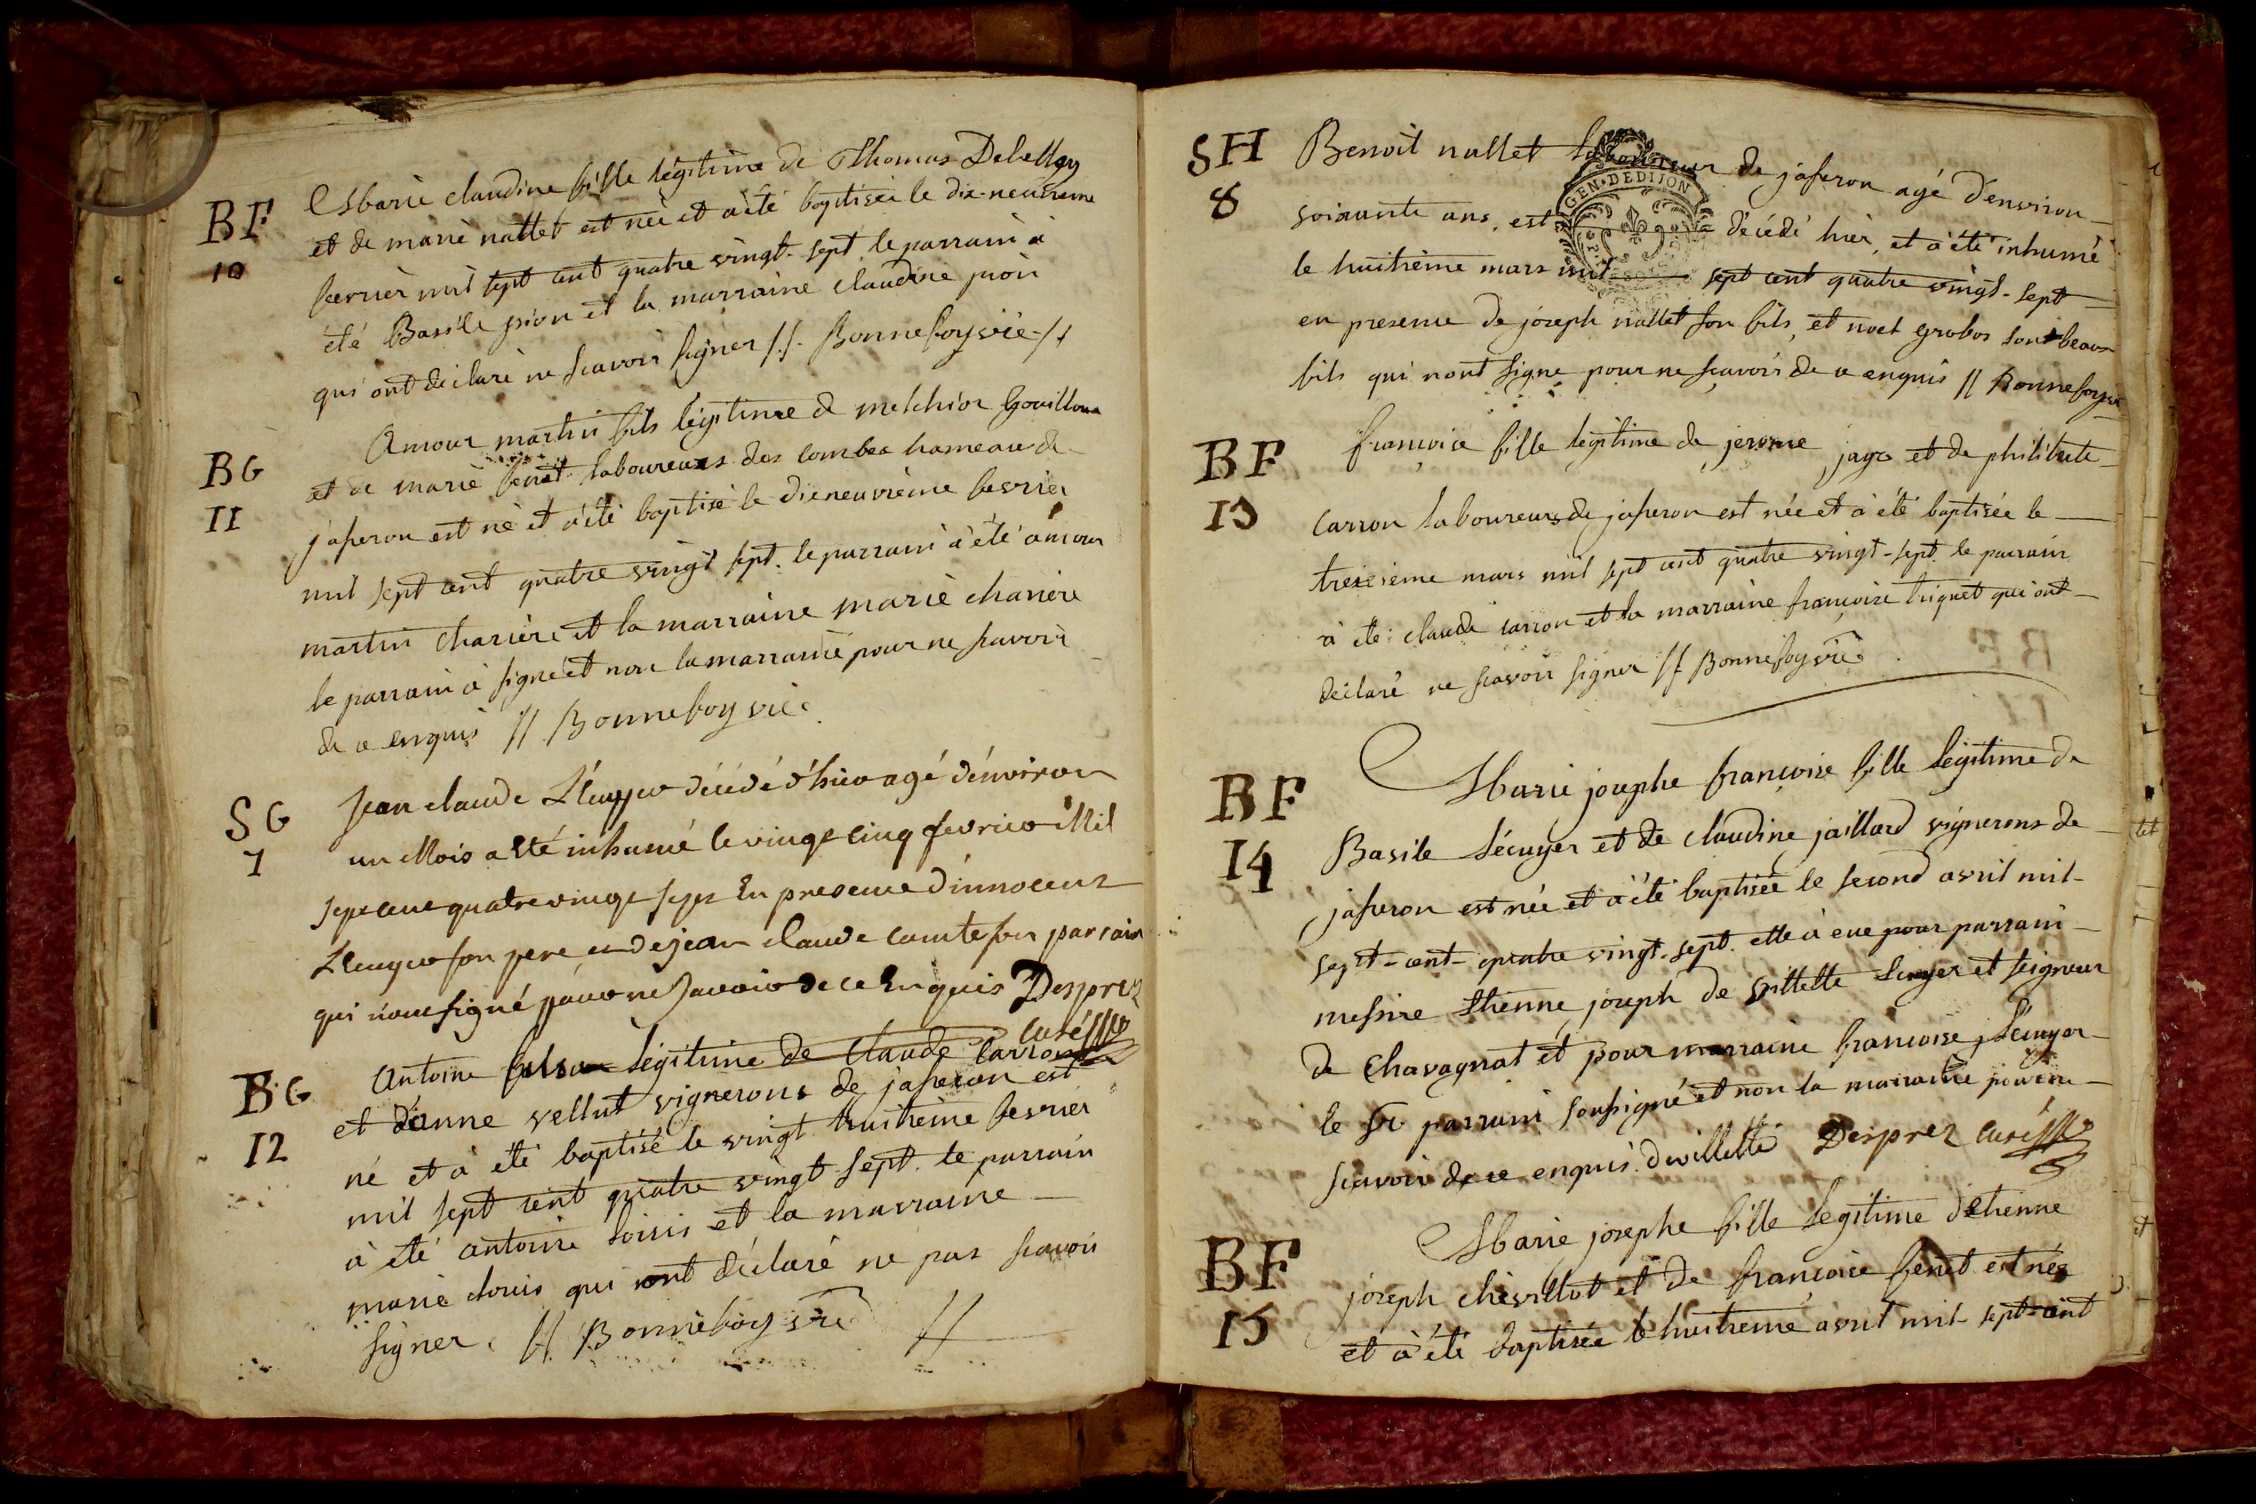 BF
10
Marie claudine fille légitime de Thomas
et de marie nallet est née et a été baptisée le dix-neuvieme
fevrier mil sept cent quatre vingt-sept le parrain à
été Basile pion et la marraine claudine pion
qui ont déclaré ne scavoir signer //. Bonnefoy vic //
BG
11
Amour martin fils légitime de melchior Gouilloux
et de marie benat laboureurs des combes hameau de
jaseron est né et à été baptisé le dixneuvième fevrier
mil sept cent quatre vingt sept. le parrain à été amour
martin charière et la marraine marie charière
le parrain à signé et non la marraine pour ne scavoir
de ce enquis // Bonnefoy vic.
SG
7
Jean claude Lécuyer décédé d'hier agé d'environ
un Mois a Eté inhumé le vingt cinq fevrier Mil
sept cent quatre vingt sept En presence d'innocent
Lécuyer son pere et de jean claude comte son parrain
qui n'ont signé pour ne Savoir de ce Enquis Desprez
curé
BG
12
Antoine fils légitime de Claude Carron
et d'anne vellut vignerons de jaseron est
né et à été baptisé le vingt huitieme fevrier
mil sept cent quatre vingt sept. le parrain
à été antoine loisis et la marraine
marie clouis qui ont déclaré ne pas scavoir
signer. // Bonnefoy vic //
SH
8
Benoit nallet laboureur de jaseron agé d'environ
GEN. DE DIJON
soixante ans, est décédé hier, et à été inhumé
le huitième mars mil sept cent quatre vingt-sept
en presence de joseph nallet son fils, et noel grobos son beau
fils qui n'ont signé pour ne scavoir de ce enquis // Bonnefoy vic
BF
13
francoise fille légitime de jerome jago et de philiberte
carron laboureurs de jaseron est née et à été baptisée le
treizieme mars mil sept cent quatre vingt-sept le parrain
à été claude carron et la marraine françoise triquet qui ont
déclaré ne scavoir signer // Bonnefoy vic
BF
14
Marie josephe françoise fille légitime de
Basile Lécuyer et de claudine jaillard vignerons de
jaseron est née et à été baptisée le second avril mil
sept-cent-quatre vingt-sept. elle à eue pour parrain
messire Etienne joseph de villette Ecuyer et seigneur
de Chavagnat et pour marraine francoise Lécuyer
le Sr parrain soussigné et non la marraine pour ne
scavoir de ce enquis. devillette Desprez curé
BF
15
Marie josephe fille légitime d'etienne
joseph chevillot et de francoise benet est née
et à été baptisée le huitieme avril mil-sept-cent